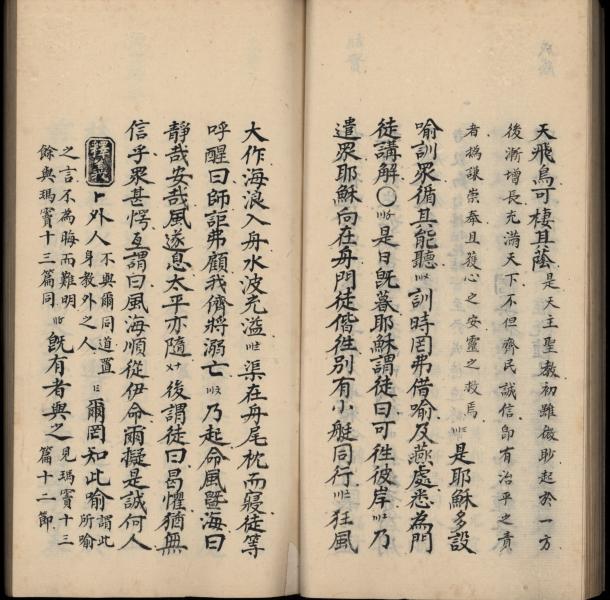 天飛鳥可棲且蔭是天主聖教初雖微眇起於一方
後漸增長充滿天下不但齊民誠信卽有治平之責
者謙崇奉且獲心之安靈之救焉是耶穌多設
喻訓眾循其能聽訓時罔弗借喻及燕處悉為門
徒講解〇是日旣暮耶穌謂徒曰可徃彼岸乃
遣眾耶穌向在舟門徒偕徃別有小艇同行狂風
大作海浪入舟水波充溢渠在舟尾枕而寢徒等
呼醒曰師詎弗顧我儕將溺亡乃起命風暨海曰
靜哉安哉風遂息太平亦隨後謂徒曰曷懼猶無
信乎眾甚愕互謂曰風海順從伊命爾擬是誠何人
釋義外人不與爾同道置身教外之人爾罔知此喻謂此所喻
之言不為晦而難明餘與瑪竇十三篇同旣有者與之見瑪竇十三篇十二節